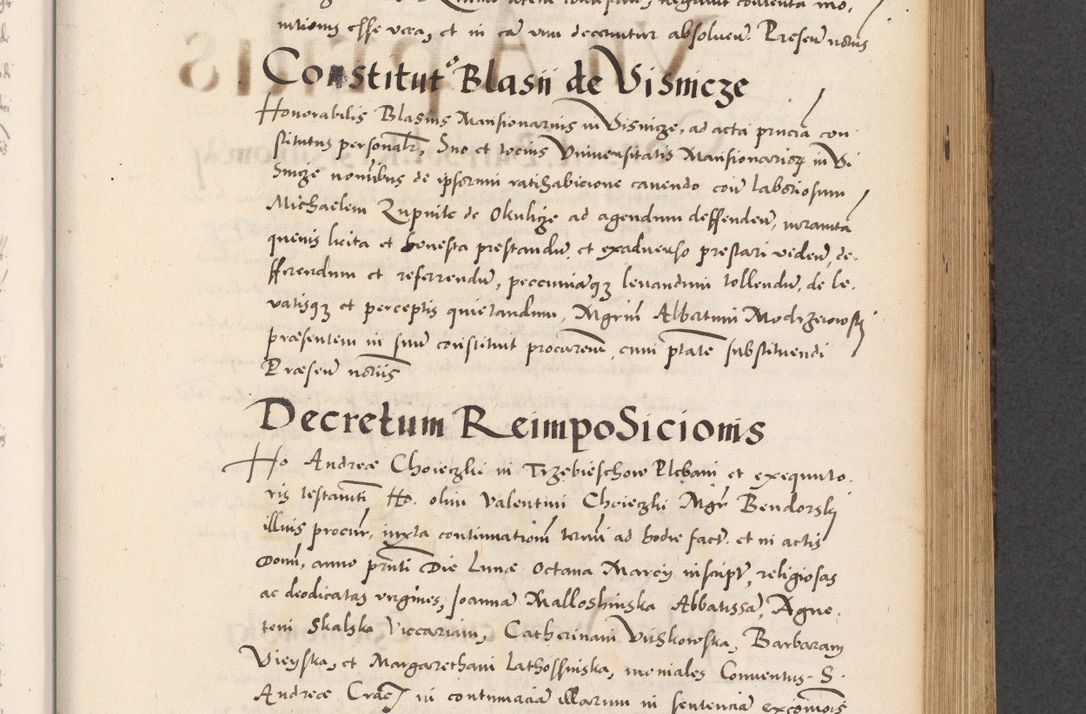 nitionis esse vera, et in ea vim decernitur absolven. Presen. notus
Constitut.º Blasii de Visnicze
Honorabilis Blasius Mansionarius in Visnicze, ad acta pncia con
stitutus personalr. Suo et tocius Universitatis Mansionarior. in Vi
snicze nominibus de ipsorum ratihabicione cavendo coiu laboriosum
Michaelem Zupnik de Okulicze ad agendum deffenden, iuramta
quevis licita et honesta prestandu. et exadverso prestari viden, de
fferendum et referrendu, peccuniasqz levandum tollendu, de le
vatisqz et perceptis quietandum, Mgrum Albertum Modrzewoski
præsentem in suu constituit procuratorem, cum ptate substituendi
Præsen notiis
Decretum Reimposicionis
Ho Andreæ Choieczki in Trzebieschow Plebani et exequuto
ris testamti Ho. olim Valentini Choieczki Mgr Bendorski
illius procur, iuxta continuationem termi ad hodie fact. et in actis
Domi, anno pnti Die Lunæ Octava Marcy inscript, religiosas
ac deodicatas virgines, Joannam Malloshinska Abbatissa, Agne
tem Skalska Viccariam, Catherinam Vitskowska, Barbaram
Vieyska, et Margarethani Lathossinska, moniales Conventus S.
Andreæ Crac in contumaciam illarum in sententia excomois